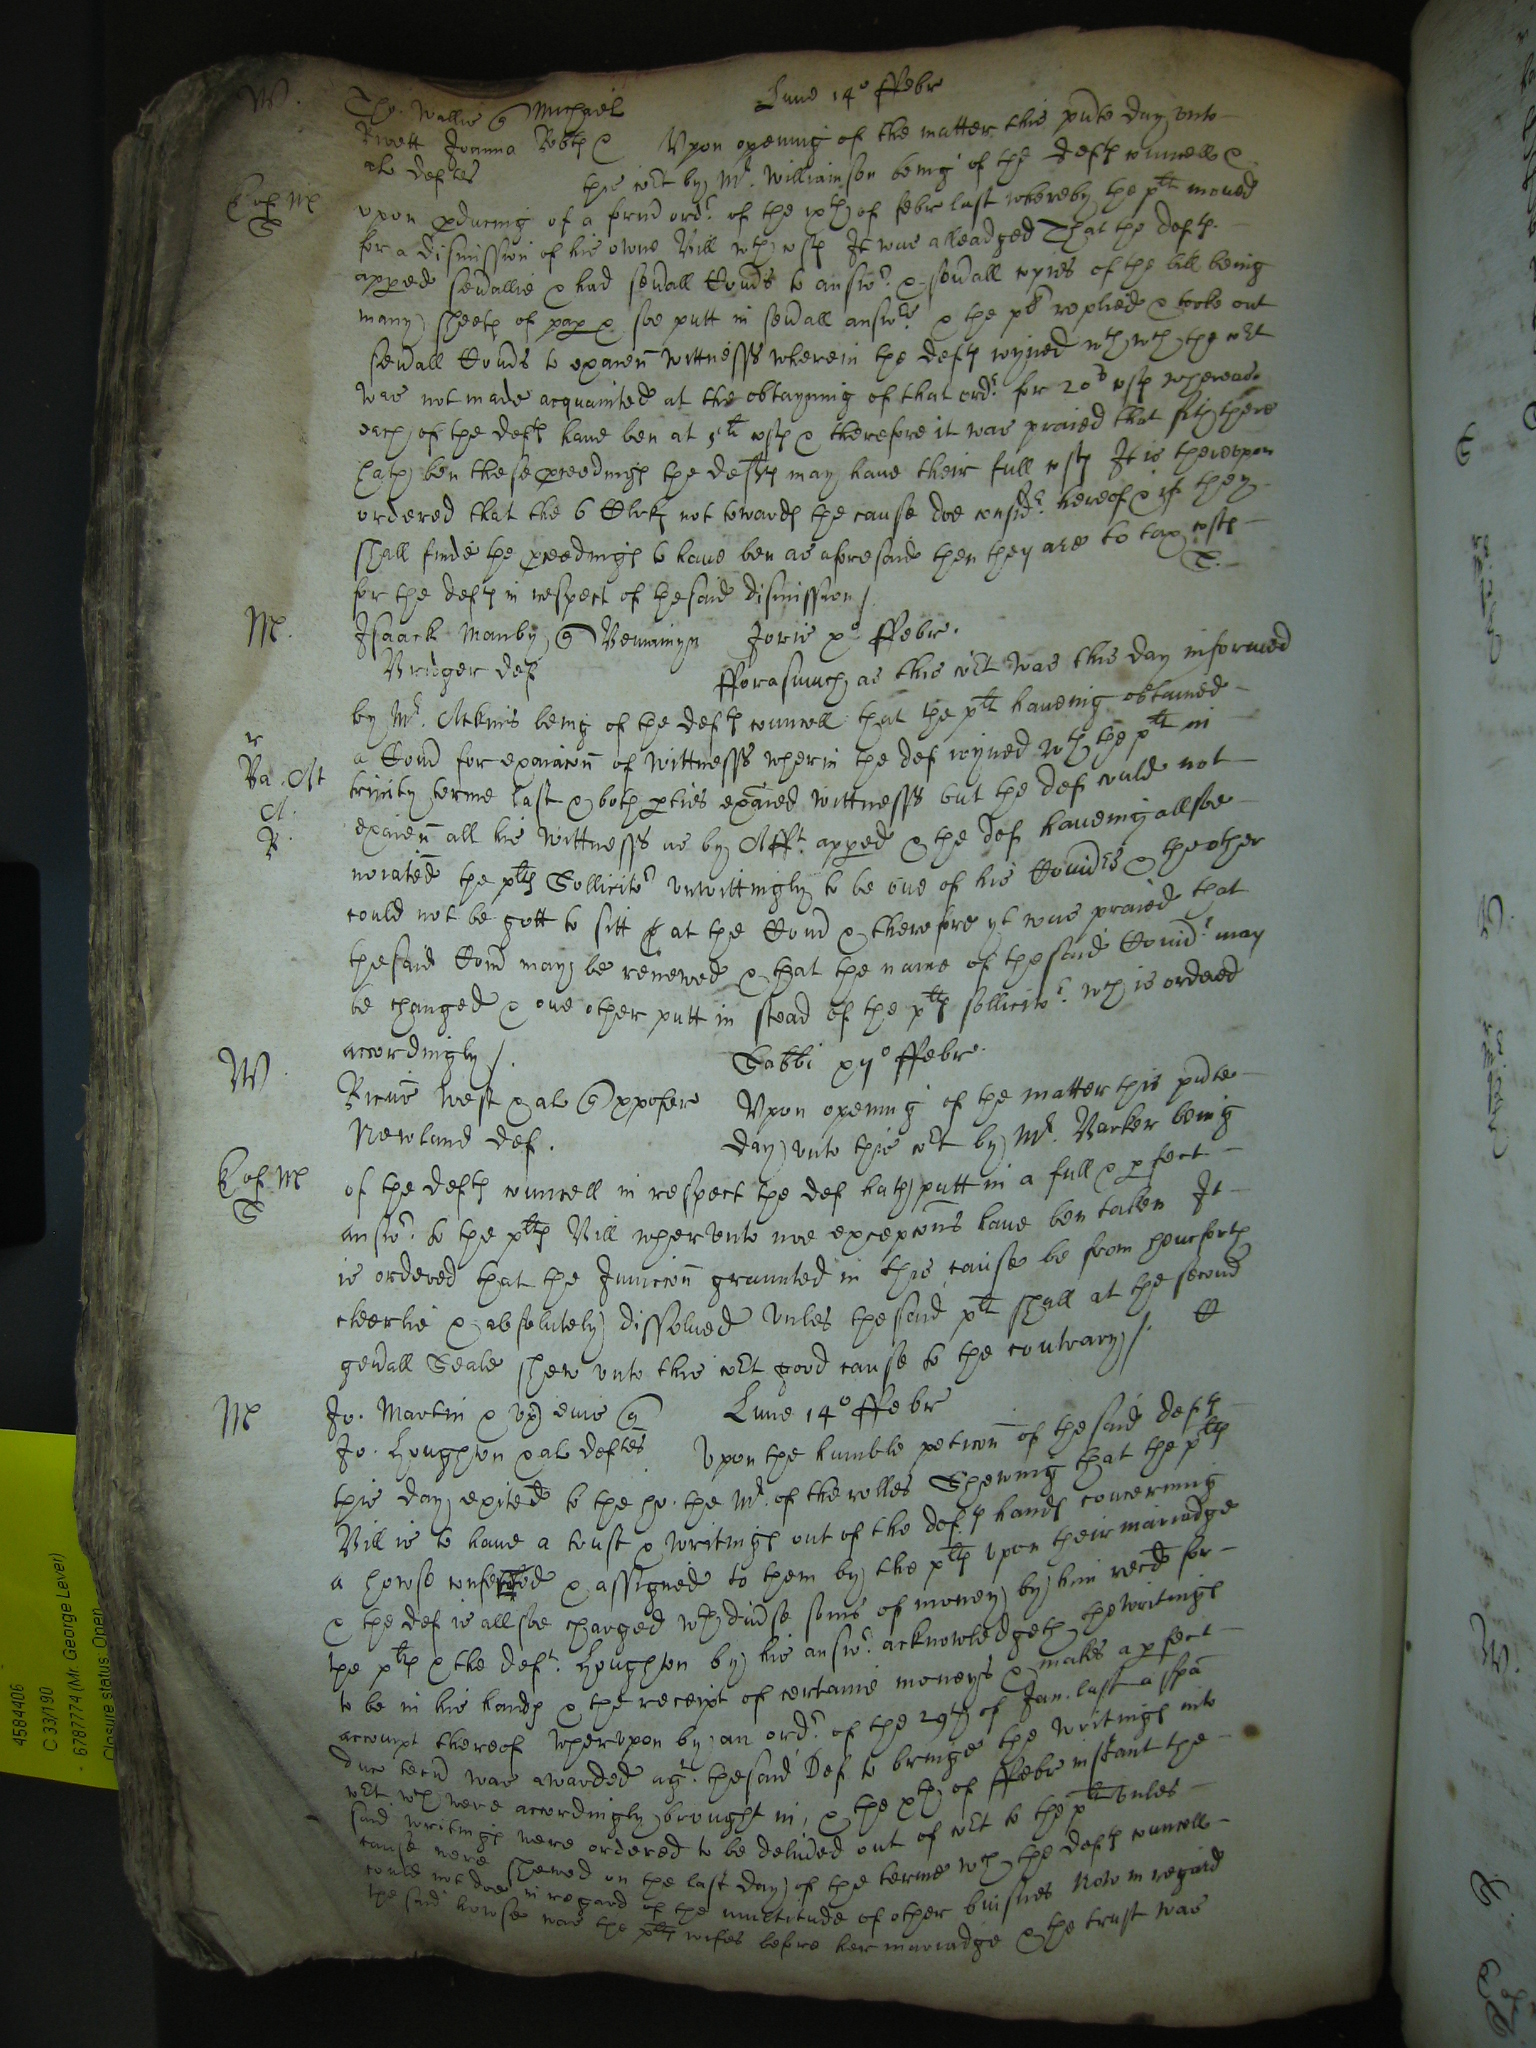 W. Tho. Wallis q Michael Lune 14° ffebr
Rivett Joanna Robts & Upon opening of the matter this pnte day unto
als deftes this cort by Mr. Williamson being of the defts councell &
Ex M
upon pducing of a formd ordr of the ixth of febr last whereby the plt moved
for a dismission of his owne Bill wth costs It was alleadged That the defts
appeed sevallie & had sevall Comds to answr & sevall copies of the bill being
many sheets of pap & soe putt in sevall answrs & the plt replied & tooke out
sevall Comds to examn wittnesses wherein the defts ioyned wth wch the cort
was not made acquainted at the obtayning of that ordr for 20s costs whereas
each of the defts have ben at 5li costs & therefore it was praied that sith there
hath ben these pceedings the defts may have their full costs It is thereupon
ordered that the 6 Clrks not towards the cause doe considr hereof & if they
shall finde the pceedings to have ben as aforesaid then they are to tax costs
for the defts in respect of thesaid dismission /.
M. Isaack Manby q Beniamyn Jovis x° ffebr.
Bridger def fforasmuch as this cort was this day informed
by Mr. Atkins being of the defts councell that the plt haveing obtained
a Comd for examacon of wittnesses wherin the def ioyned wth the plt in
r
Ba. At
trinity terme last & both pties examed wittnesses but the def could not
A.
R.
examn all his wittnesses as by Afft. appeed & the def haveing allsoe
noiated the plts Sollicitor unwittingly to be one of his Comrs & the other
could not be gott to sitt at the Comd & therefore yt was praied that
thesaid Comd may be renewed & that the name of thesaid Comr may
be changed & one other putt in stead of the plts sollicitor wch is ordered
accordingly /. Sabbi xij° ffebr.
W. Ricus West & als q xpofer Upon opening of the matter this pnte
Newland def. day unto this cort by Mr. Barker being
Ex M
of the defts councell in respect the def hath putt in a full & pfect
answr to the plts Bill wherunto noe excepcons have ben taken It
is ordered that the Iniunccon graunted in this cause be from henceforth
cleerlie & absolutely dissolved Unles thesaid plt shall at the second
genall Seale shew unto this cort good cause to the contrary /.
M Jo. Martin & ux eius q Lune 14° ffebr
Jo. Houghton & als deftes Upon the humble peticon of thesaid defts
this day exited to the ho. the Mr. of the rolles Shewing that the plts
Bill is to have a trust & writings out of the defts hands concerning
a howse & assigned to them by the plts upon their mariadge
& the def is allsoe charged wth divse soms of money by him recd for
the plts & the deft. Houghton by his answr acknowledgeth the writings
to be in his hands & the receipt of certaine moneys & makes a pfect
accompt thereof wherupon by an ordr of the 29th of Jan. last a spa
duc tecu was awarded agt. thesaid Def to bringe the writings into
cort wch were accordingly brought in, & the xth of ffebr instant the
said writings were ordered to be delived out of cort to the plt unles
cause were shewed on the last day of the terme wch the defts councell
could not doe in regard of the multitude of other buisnes Now in regard
the said howse was the plts wifes before her mariadge & the trust was
4584406
C 33/190
6787774 (Mr. George Lever)
Closure status: Open